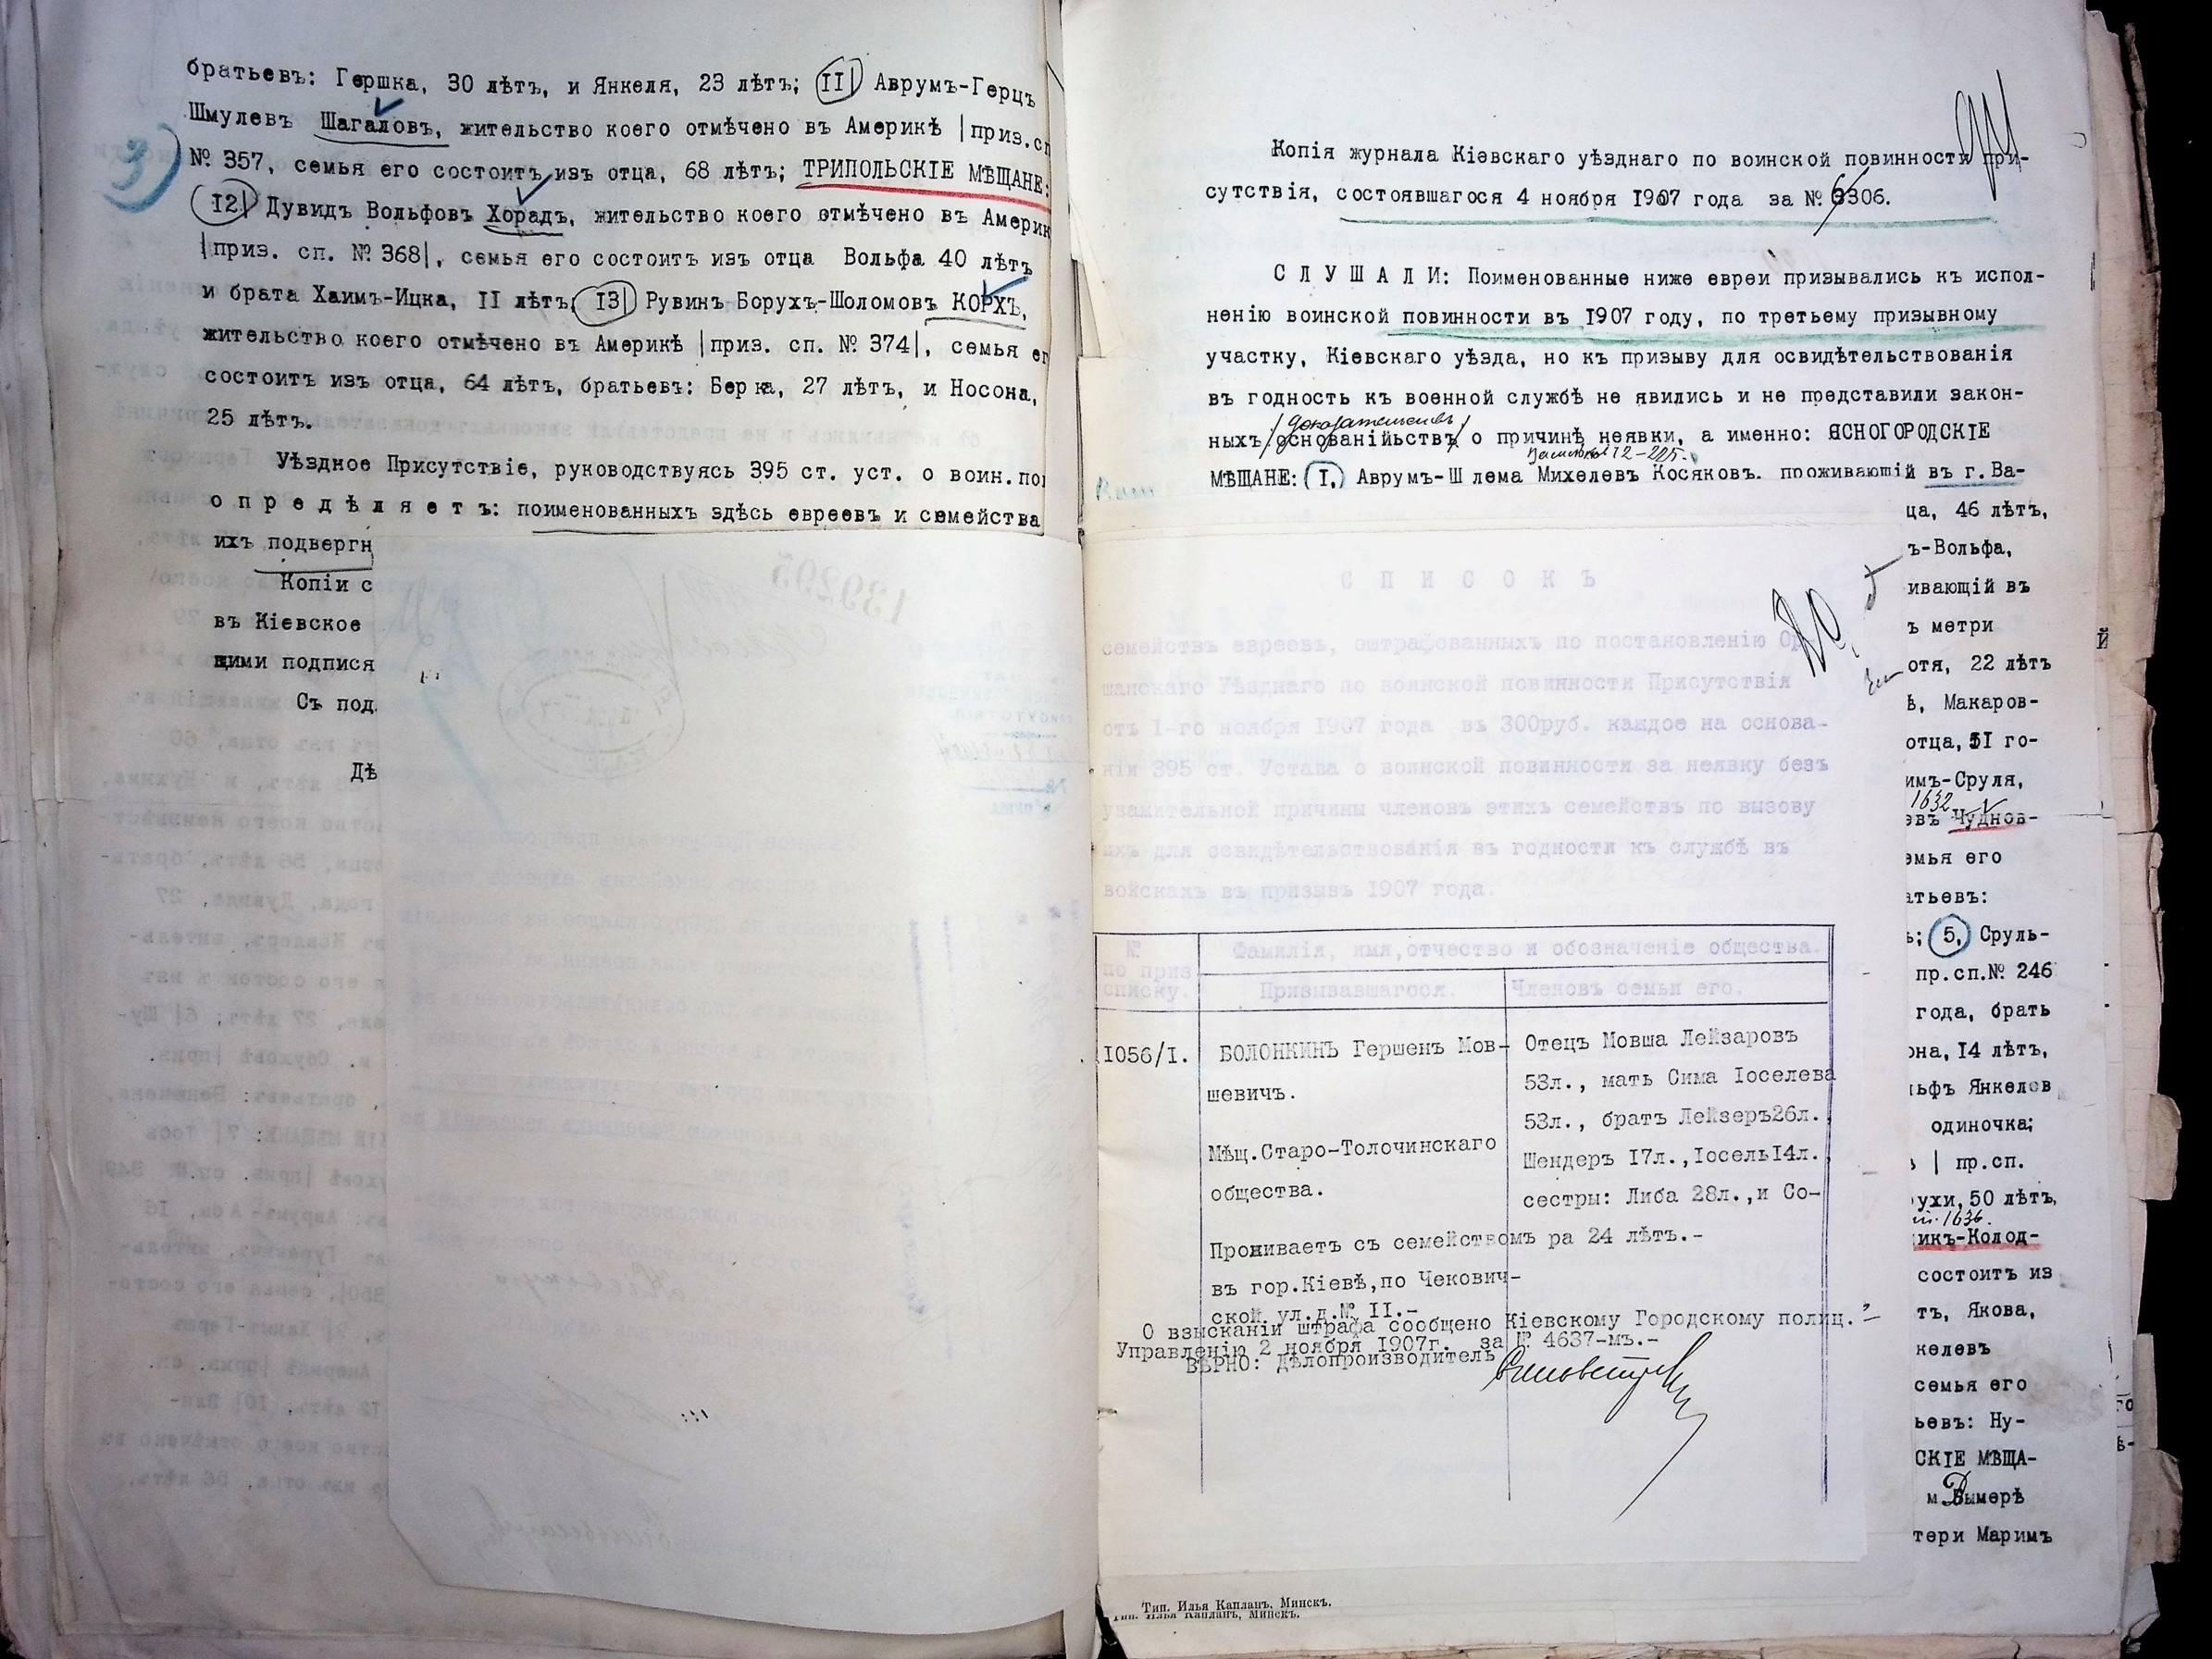 братьевъ: Гершка, 30 лѣтъ, и Янкеля, 23 лѣтъ; II| Аврумъ-Герцъ
Шмулевъ Шагаловъ, жительство коего отмѣчено въ Америкѣ |приз.сп
№ 357, семья его состоитъ изъ отца, 68 лѣтъ; ТРИПОЛЬСКІЕ МѢЩАНЕ:
3)
I2| Дувидъ Вольфовъ Хорадъ, жительство коего отмѣчено въ Америк
|приз. сп. № 368|, семья его состоитъ изъ отца Вольфа 40 лѣтъ
и брата Хаимъ-Ицка, II лѣтъ; I3| Рувинъ Борухъ-Шоломовъ КОРХЪ,
жительство коего отмѣчено въ Америкѣ |приз. сп. № 374|, семья ег
состоитъ изъ отца, 64 лѣтъ, братьевъ: Берка, 27 лѣтъ, и Носона,
25 лѣтъ.
Уѣздное Присутствіе, руководствуясь 395 ст. уст. о воин.по
о п р е д ѣ л я е т ъ: поименованныхъ здѣсь евреевъ и семейства
ихъ подвергн
Копіи с
въ Кіевское
щими подпися
Съ под
Дѣ
Копія журнала Кіевскаго уѣзднаго по воинской повинности при-
сутствія, состоявшагося 4 ноября I907 года за № 6306.
С Л У Ш А Л И: Поименованные ниже евреи призывались къ испол-
ненію воинской повинности въ I907 году, по третьему призывному
участку, Кіевскаго уѣзда, но къ призыву для освидѣтельствованія
въ годность къ военной службѣ не явились и не представили закон-
доказательствъ
ныхъ основанійьствъ о причинѣ неявки, а именно: ЯСНОГОРОДСКІЕ
МѢЩАНЕ: I. Аврумъ-Шлема Михелевъ Косяковъ, проживающій въ г.Ва-
ца, 46 лѣтъ,
ъ-Вольфа,
ивающій въ
ъ метри
отя, 22 лѣтъ
ѣ, Макаров-
отца, 5I го-
имъ-Сруля,
1632
евъ Чуднов-
емья его
атьевъ:
ь; 5. Сруль-
пр.сп.№ 246
года, братъ
она, I4 лѣтъ,
льфъ Янкелев
одиночка;
| пр.сп.
ухи, 50 лѣтъ,
1636.
икъ-Колод-
состоитъ из
тъ, Якова,
келевъ
семья его
ьевъ: Ну-
СКІЕ МѢЩА-
м. Дымерѣ
тери Маримъ
С П И С О К Ъ
семействъ евреевъ, оштрафованныхъ по постановленію Ор-
шанскаго Уѣзднаго по воинской повинности Присутствія
отъ I-го ноября I907 года въ 300руб. каждое на основа-
ніи 395 ст. Устава о воинской повинности за неявку безъ
уважительной причины членовъ этихъ семействъ по вызову
ихъ для освидѣтельствованія въ годности къ службѣ въ
войскахъ въ призывъ I907 года.
№ по приз. списку.
Фамилія, имя,отчество и обозначеніе общества.
Призывавшагося.
Членовъ семьи его.
I056/I.
БОЛОНКИНЪ Гершенъ Мов-
шевичъ.
Мѣщ.Старо-Толочинскаго
общества.
Проживаетъ съ семействомъ
въ гор.Кіевѣ,по Чекович-
ской ул.д.№ II.-
Отецъ Мовша Лейзаровъ
53л., мать Сима Іоселева
53л., братъ Лейзеръ26л.,
Шендеръ I7л.,ІосельI4л.,
сестры: Либа 28л.,и Со-
ра 24 лѣтъ.-
О взысканіи штрафа сообщено Кіевскому Городскому полиц.
Управленію 2 ноября I907г. за № 4637-мъ.-
ВѢРНО: Дѣлопроизводитель
Тип. Илья Капланъ, Минскъ.
Тип. Илья Капланъ, Минскъ.